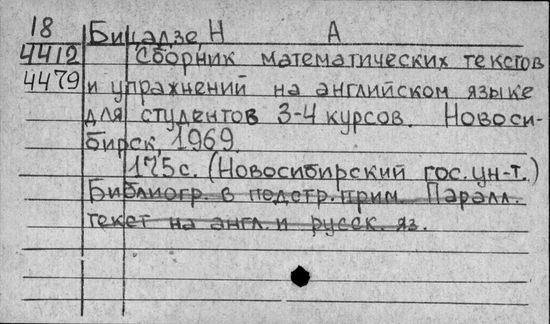 18 Бицадзе, Н А
4412 Сборник математических текстов
4479 и упражнений на английском языке
для студентов 3-4 курсов. Новоси-
бирск, 1969.
175с. (Новосибирский гос. ун-т.)
Библиогр. в подстр. прим. Паралл.
текст на англ. и русск. яз.